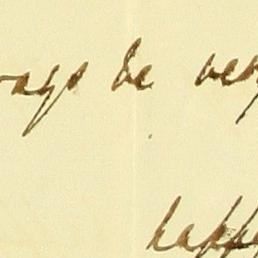 ways be very
happy